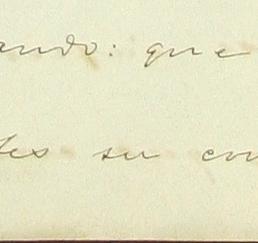 ando: que
tes su con